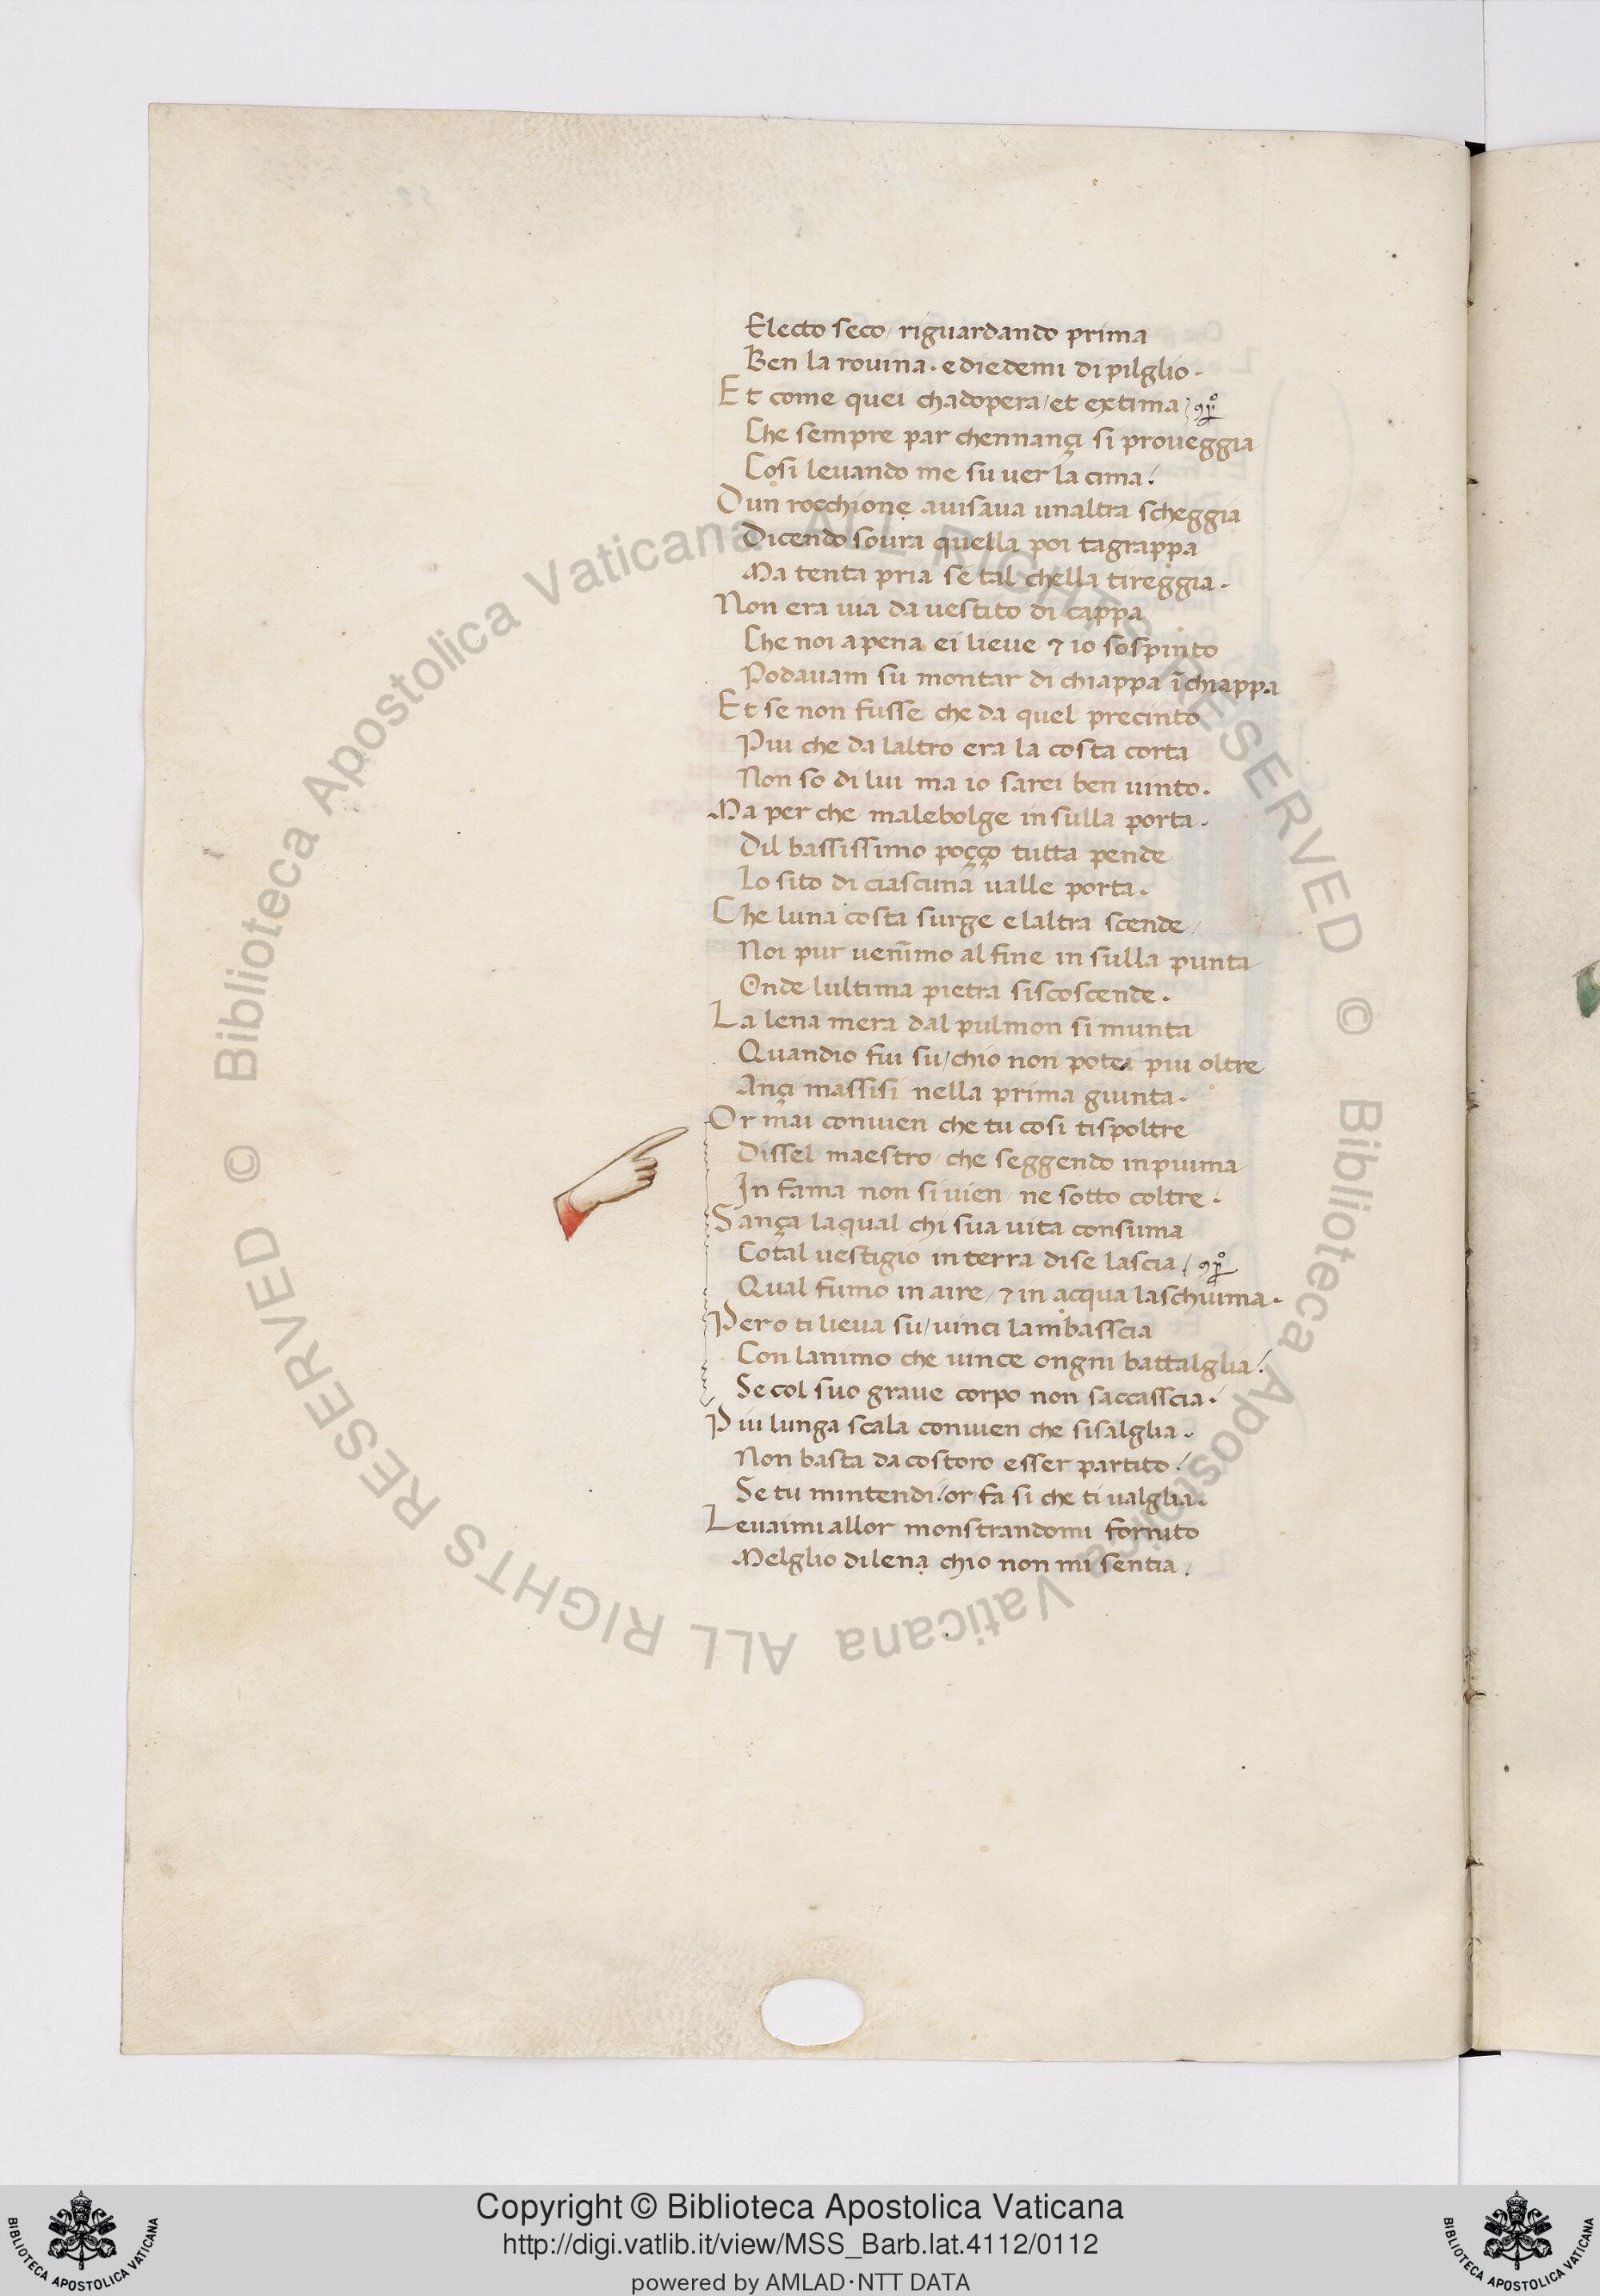 Electo seco / riguardando prima
Ben la rouina · e diedemi di pilglio ·
Et come quei chadopera / et extima /
Che sempre par chennançi si proueggia
Cosi leuando me su uer la cima /
Dun rocchione auisaua unaltra scheggia
Dicendo soura quella poi tagrappa
Ma tenta pria se tal chella tireggia ·
Non era uia da uestito di cappa
Che noi apena ei lieue ⁊ io sospinto
Podauam su montar di chiappa ĩ chiappa
Et se non fusse che da quel precinto
Piu che da laltro era la costa corta
Non so di lui ma io sarei ben uinto ·
Ma per che malebolge in sulla porta ·
Dil bassissimo poçço tutta pende
Lo sito di ciascuna ualle porta ·
Che luna costa surge e laltra scende /
Noi pur uenĩmo al fine in sulla punta
Onde lultima pietra siscoscende ·
La lena mera dal pulmon si munta
Quandio fui su / chio non potea piu oltre
Ançi massisi nella prima giunta ·
Or mai conuien che tu cosi tispoltre
Dissel maestro / che seggendo in piuma
In fama non si uien / ne sotto coltre ·
Sança laqual chi sua uita consuma
Cotal uestigio in terra di se lascia /
Qual fumo in aire / ⁊ in acqua laschiuma ·
Pero ti lieua su / uinci lambasscia
Con lanimo che uince ongni battalglia /
Se col suo graue corpo non saccasscia ·
Piu lunga scala conuien che sisalglia ·
Non basta da costoro esser partito /
Se tu mintendi / or fa si che ti ualglia ·
Leuaimi allor monstrandomi fornito
Melglio di lena chio non mi sentia /
© Biblioteca Apostolica Vaticana ALL RIGHTS RESERVED © Biblioteca Apostolica Vaticana ALL RIGHTS RESERVED
Copyright © Biblioteca Apostolica Vaticana
http://digi.vatlib.it/view/MSS_Barb.lat.4112/0112
powered by AMLAD·NTT DATA
BIBLIOTECA APOSTOLICA VATICANA
BIBLIOTECA APOSTOLICA VATICANA